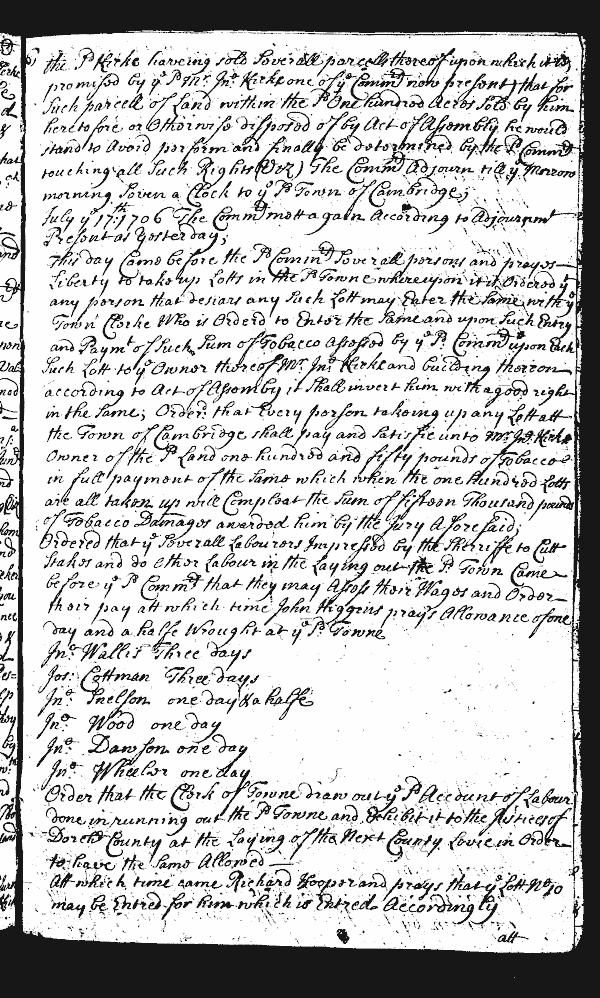 the Sd Kirke haveing sold Severall parcells thereof upon which it is
promised by ye Sd Mr. Jno. Kirke one of ye Commrs now present, that for
Such parcell of Land within the Sd One hundred Acres Sold by him
heretofore or Otherwise disposed of by Act of Assembly, he would
stand to Avoid perform and finally be determined by the Sd Commrs
touching all Such Rights (Vizt) The Commrs Adjourn till ye Morrow
morning Seven a Clock to ye Sd Town of Cambridge;
July ye 17th: 1706 The Commrs mett again According to Adjournmt
Present as Yesterday;
This day Came before the Sd Commrs Severall persons and prayes
Liberty to take up Lotts in the Sd Towne whereupon it is Ordered yt
any person that desiars any Such Lott may Enter the Same with ye
Town Clerke Who is Orderd to Enter the Same and upon Such Entry
and Paymt of Such Sum of Tobacco Assessed by ye Sd Commrs upon Each
Such Lott to ye Owner thereof Mr. Jno. Kirke and building thereon
according to Act of Assemby it shall invest him with a good right
in the Same; Order: that Every person takeing up any Lott att
the Town of Cambridge shall pay and Satisfie unto Mr. Jno. Kirke
Owner of the Sd Land one hundred and fifty pounds of Tobacco
in full payment of the Same which when the one hundred Lotts
are all taken up will Compleat the Sum of fifteen Thousand pounds
of Tobacco Damages awarded him by the Jury Aforesaid;
Ordered that ye Severall Labourers Impressed by the Sheriffe to Cutt
Stakes and do other Labour in the Laying out the Sd Town Came
before ye Sd Commrs that they may Assess their Wages and Order
their pay att which time John Higgins prays Allowance of one
day and a halfe Wrought at ye Sd Towne
Jno. Wallis Three days
Jos: Cottman Three days
Jno. Snelson one day & a halfe
Jno. Wood one day
Jno. Dawson one day
Jno. Wheeler one day
Order that the Clerk of Towne draw out ye Sd Account of Labour
done in running out the Sd Towne and Exhibit it to the Justices of
Dorchr County at the Laying of the Next County Levie in Order
to have the Same Allowed
Att which time came Richard Hooper and prays that ye Lott No. 10
may be Entred for him which is Entred Accordingly
att